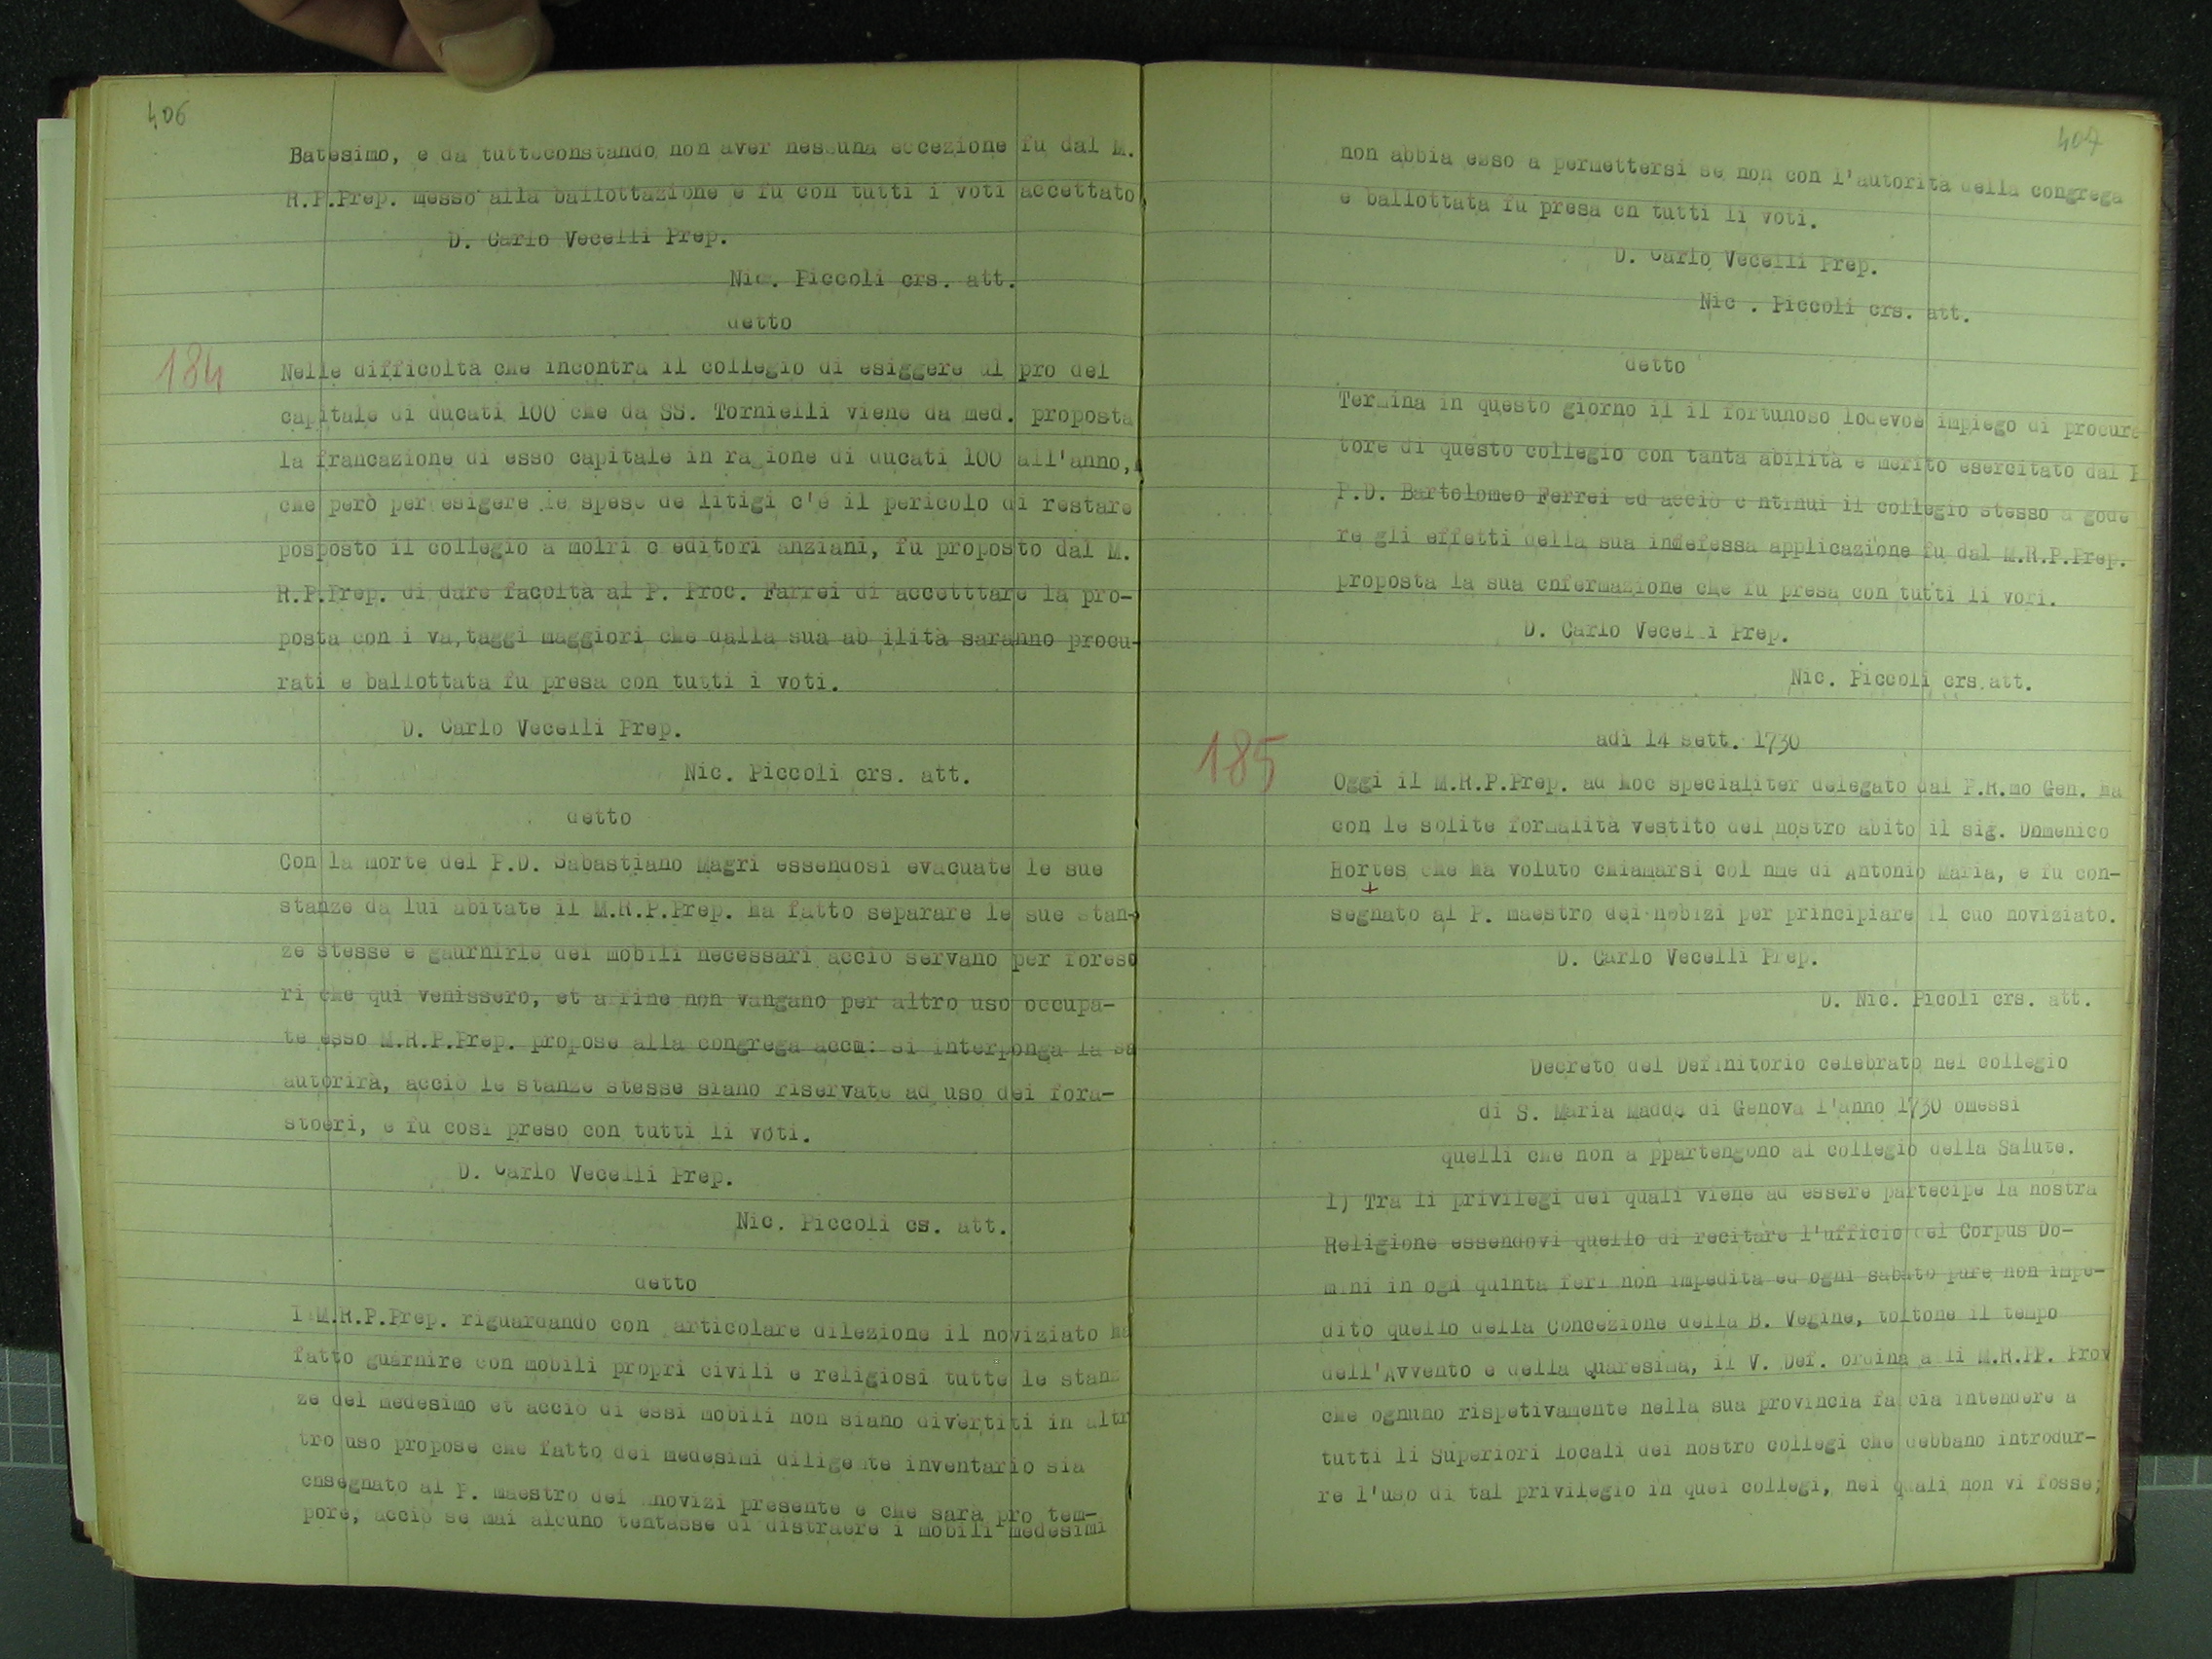 406
Batesimo, e da tutteconstando non aver nessuna eccezione fu dal M.
R.P.Prep. messo alla ballottazione e fu con tutti i voti accettato
D. Carlo Vecelli Prep.
Nic. Piccoli crs. att.
detto
184
Nelle difficoltà che incontra il collegio di esiggere al pro del
capitale di ducati 100 che da SS. Tornielli viene da med. proposta
la francazione di esso capitale in ragione di ducati 100 all'anno,
che però per esigere le spese de litigi c'é il pericolo di restare
posposto il collegio a molri creditori anziani, fu proposto dal M.
R.P.Prep. di dare facoltà al P. Proc. Farrei di accetttare la pro-
posta con i va,taggi maggiori che dalla sua ab ilità saranno procu-
rati e ballottata fu presa con tutti i voti.
D. Carlo Vecelli Prep.
Nic. Piccoli crs. att.
detto
Con la morte del P.D. Sabastiano Magri essendosi evacuate le sue
stanze da lui abitate il M.R.P.Prep. ha fatto separare le sue stan-
ze stesse e gaurnirle dei mobili necessari acciò servano per fores
ri che qui venissero, et affine non vangano per altro uso occupa-
te esso M.R.P.Prep. propose alla congrega accm: si interponga la sa
autorirà, acciò le stanze stesse siano riservate ad uso dei fora-
stoeri, e fu così preso con tutti li voti.
D. Carlo Vecelli Prep.
Nic. Piccoli cs. att.
detto
I M.R.P.Prep. riguardando con articolare dilezione il noviziato ha
fatto guarnire con mobili propri civili e religiosi tutte le stan
ze del medesimo et acciò di essi mobili non siano divertiti in altr
tro uso propose che fatto dei medesimi diligente inventario sia
cnsegnato al P. maestro dei novizi presente e che sarà pro tem-
pore, acciò se mai alcuno tentasse di distraere i mobili medesimi
407
non abbia esso a permettersi se non con l'autorità della congrega
e ballottata fu presa cn tutti li voti.
D. Carlo Vecelli Prep.
Nic . Piccoli crs. att.
detto
Termina in questo giorno il il fortunoso lodevoe impiego di procura
tore di questo collegio con tanta abilità e merito esercitato dal
P.D. Bartolomeo Ferrei ed acciò c ntinui il collegio stesso a gode
re gli effetti della sua indefessa applicazione fu dal M.R.P.Prep.
proposta la sua cnfermazione che fu presa con tutti li vori.
D. Carlo Vecelli Prep.
Nic. Piccoli crs.att.
185
adi 14 sett. 1730
Oggi il M.R.P.Prep. ad hoc specialiter delegato dal P.R.mo Gen. ha
con le solite formalità vestito del nostro abito il sig. Domenico
Hortes che ha voluto chiamarsi col nme di Antonio Maria, e fu con-
segnato al P. maestro dei nobizi per principiare il cuo noviziato.
D. Carlo Vecelli Prep.
D. Nic. Picoli crs. att.
Decreto del Definitorio celebrato nel collegio
di S. Maria Madd. di Genova l'anno 1730 omessi
quelli che non a ppartengono al collegio della Salute.
1) Tra li privilegi dei quali viene ad essere partecipe la nostra
Religione essendovi quello di recitare l'ufficio del Corpus Do-
mini in ogi quinta feri non impedita ed ogni sabato pure non impe-
dito quello della Concezione della B. Vegine, toltone il tempo
dell'Avvento e della Quaresima, il V. Def. ordina alli M.R.PP. Prov
che ognuno rispetivamente nella sua provincia faccia intendere a
tutti li Superiori locali dei nostro collegi che debbano introdur-
re l'uso di tal privilegio in quei collegi, nei quali non vi fosse;